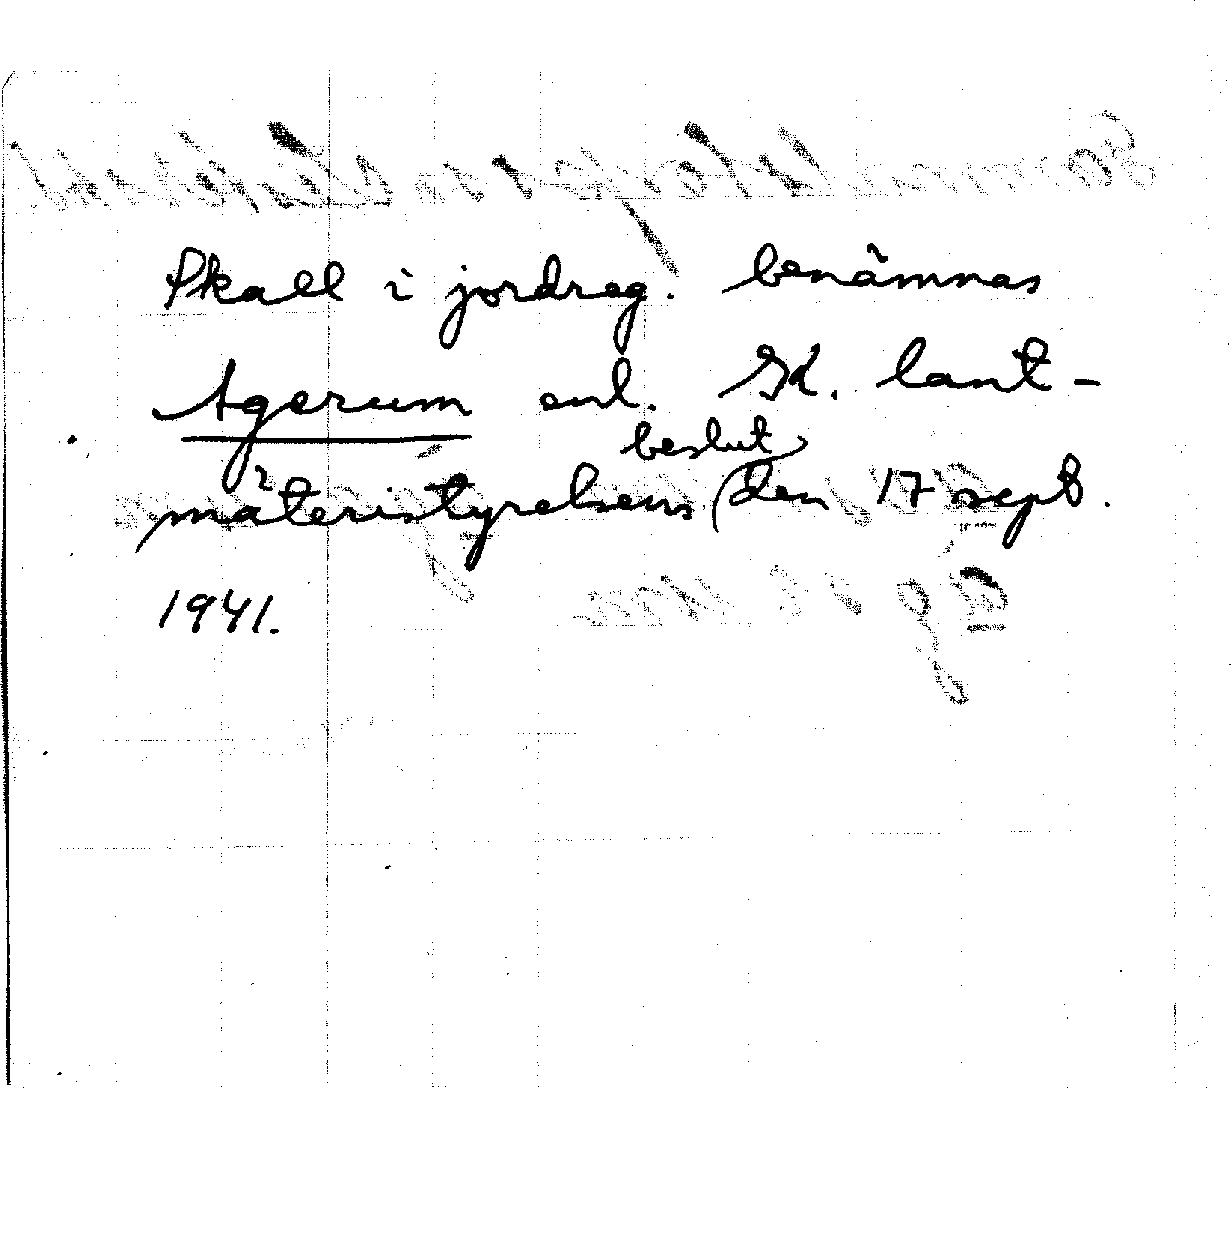 Skall i jordreg. benämnas
Agerum enl. Kl. lant-
mäteristyrelsens beslut den 17 sept.
1941.